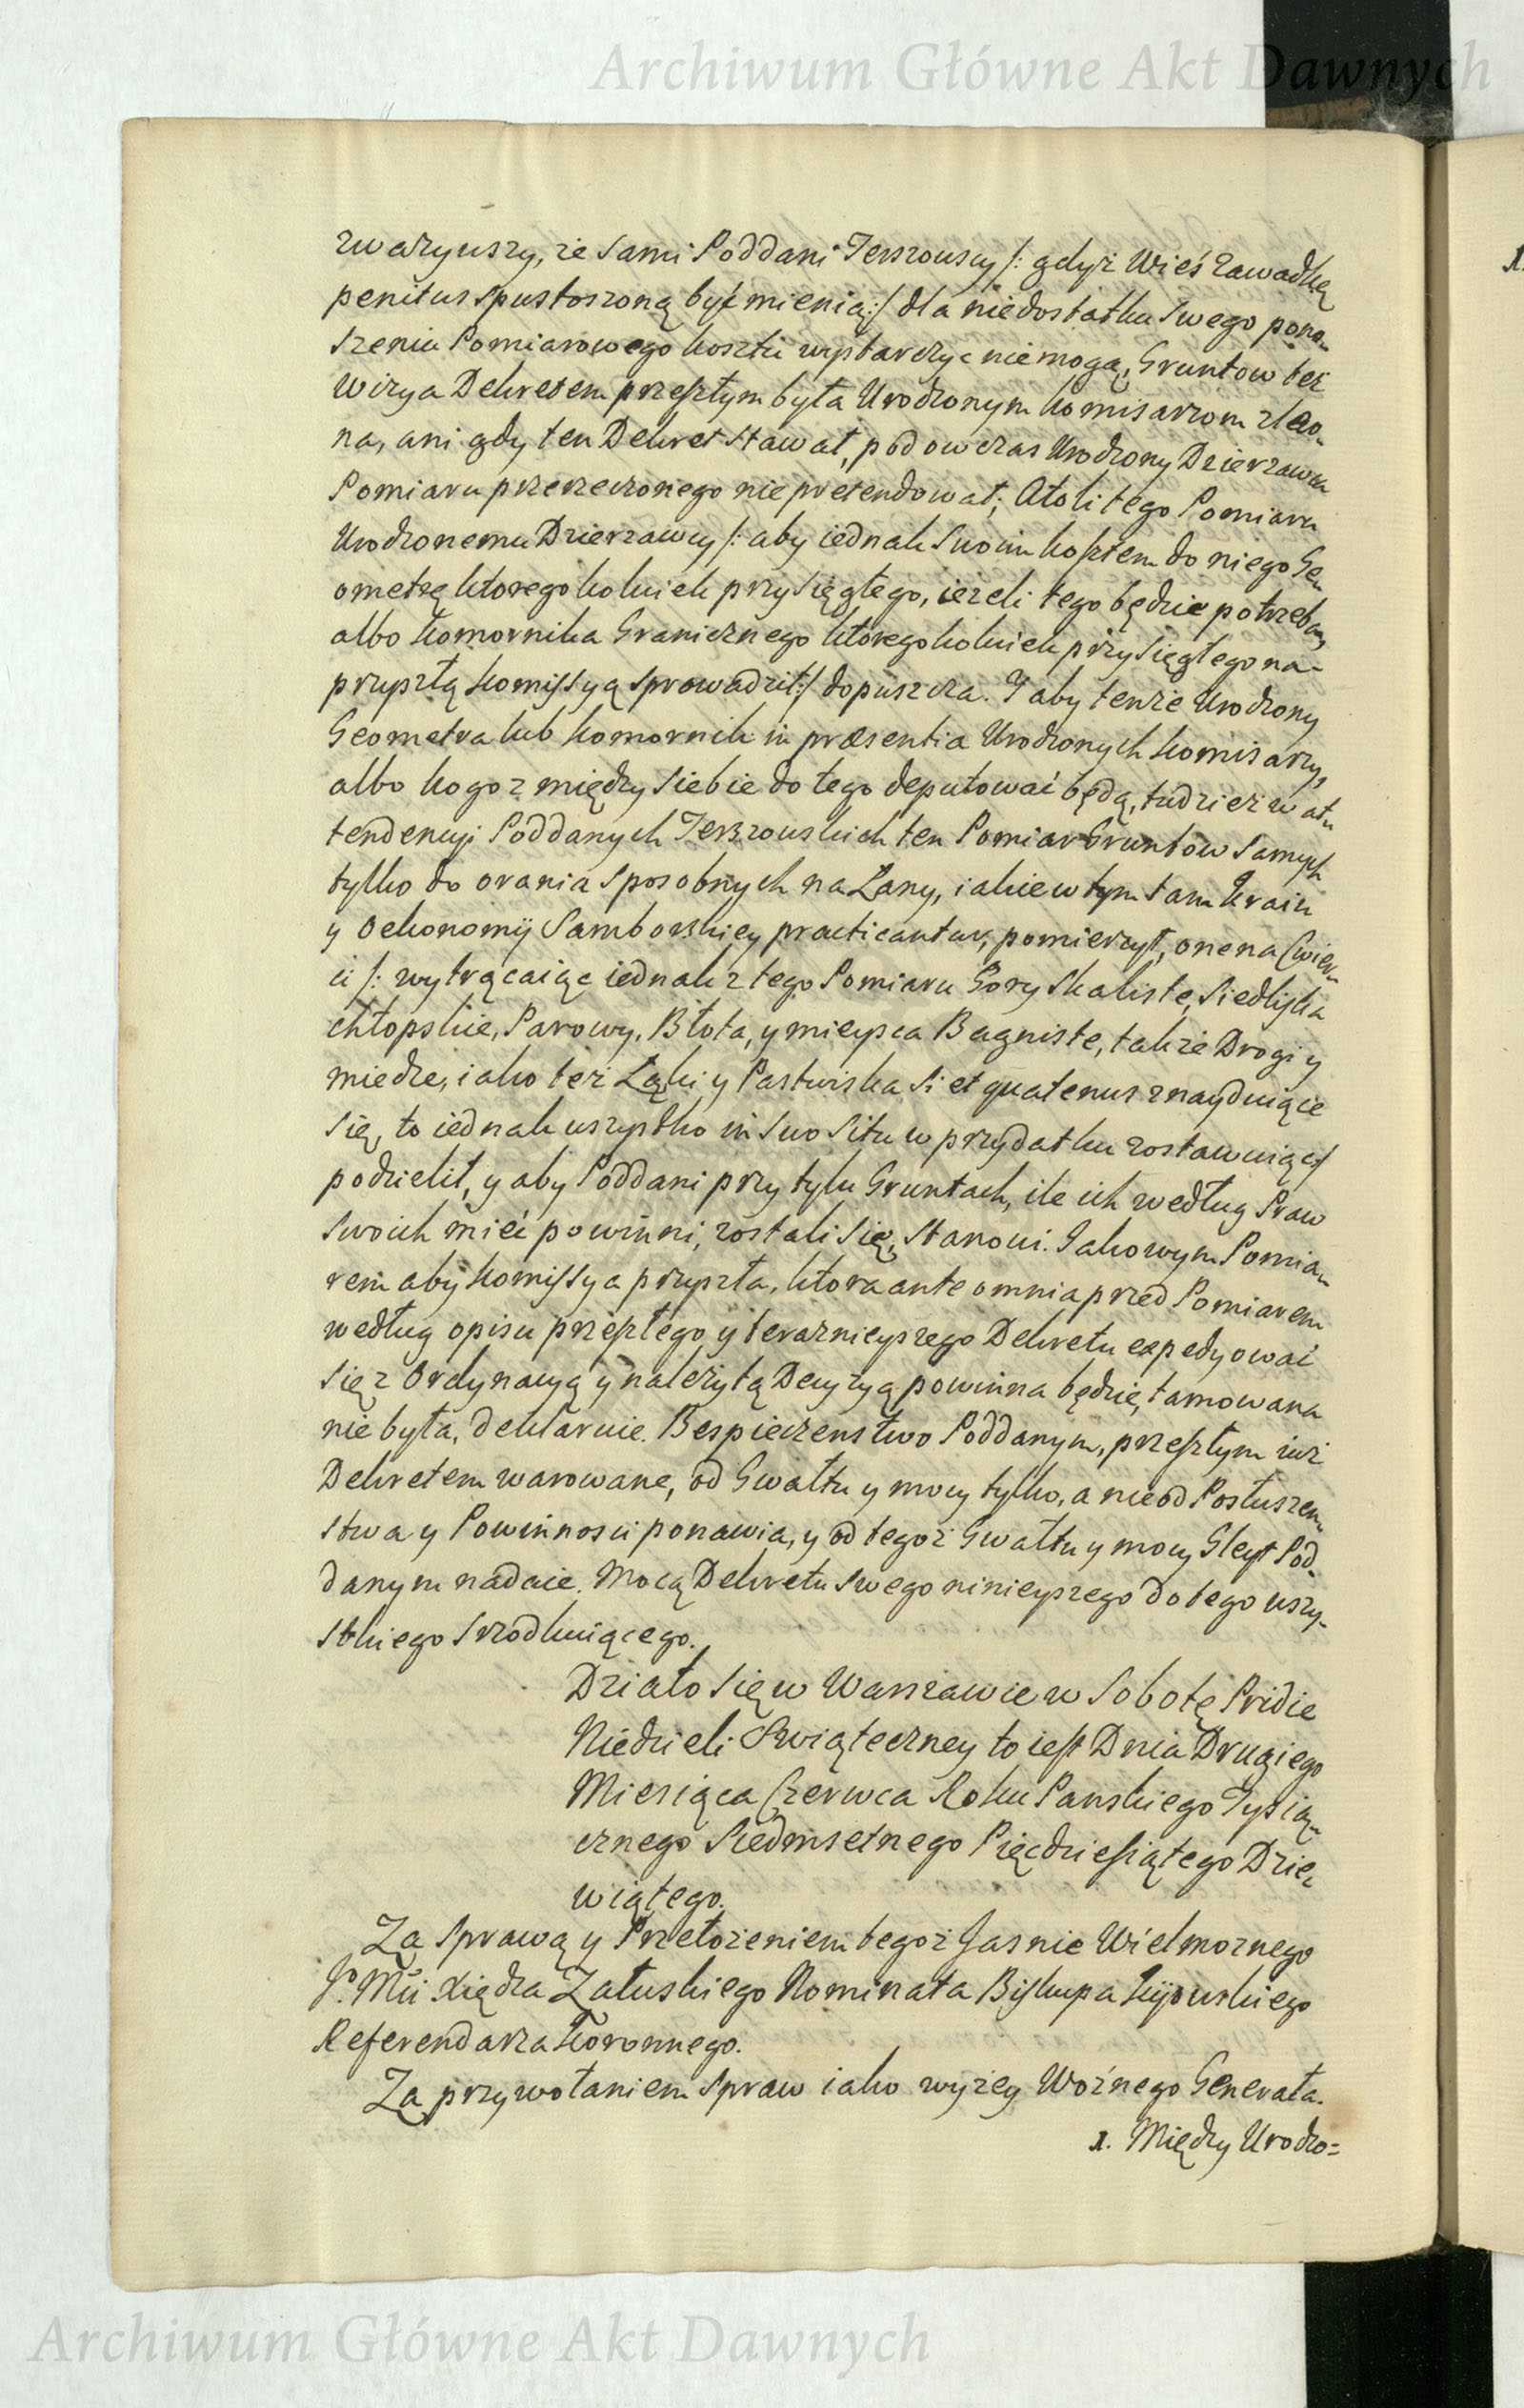 Archiwum Główne Akt Dawnych
zwazywszy, że Sami Poddani Terszowscy /: gdyż Wieś Zawadkę
penitus spustoszoną być mienią :/ dla niedostatku Swego pono-
szeniu Pomiarowego kosztu wystarczyc niemogą, Gruntow też
Wizya Dekretem przeszłym była Urodzonym Komisarzom zleco-
na, ani gdy ten Dekret stawał, podowczas Urodzony Dzierzawca
Pomiaru przerzeczonego niepretendował; Atoli tego Pomiaru
Urodzonemu Dzierzawcy /: aby iednak Swoim kosztem do niego Ge-
ometrę ktoregokolwiek przysięgłego, ieżeli tego będzie potrzeba,
albo Komornika Granicznego ktoregokolwiek przysięgłego na-
przyszłą Komissyą sprowadził :/ dopuszcza. I aby tenże Urodzony
Geometra lub Komornik in præsentia Urodzonych Komisarzy,
albo kogo z między siebie do tego deputować będą, tudzież w at-
tendencyi Poddanych Terszowskich ten Pomiar Gruntów Samych
tylko do orania sposobnych na Łany, iakie w tym tam Kraiu
y Oekonomij Samborskiey practicantur, pomierzył, one na Cwier-
ci /: wytrącaiąc iednak z tego Pomiaru Gory Skaliste, Siedliska
chłopskie, Parowy, Błota, y mieysca Bagniste, także Drogi y
miedze, iako też Łąki y Pastwiska si et quatenus znayduiące
się, to iednak wszystko in Suo Situ w przydatku zostawuiąc :/
podzielił, y aby Poddani przy tylu Gruntach, ile ich według Praw
Swoich mieć powinni, zostali się, stanowi. Jakowym Pomia-
rem aby Komissya przyszła, ktora ante omnia przed Pomiarem
według opisu przeszłego y teraznieyszego Dekretu expedyować
się z Ordynacyą y należytą Decyzyą powinna będzie, tamowana
nie była, deklaruie. Bespieczenstwo Poddanym, przeszłym iuż
Dekretem warowane, od Gwałtu y mocy tylko, a nie od Posłuszen-
stwa y Powinnosci ponawia, y od tegoż Gwałtu y mocy Gleyt Pod-
danym nadaie. Mocą Dekretu Swego ninieyszego do tego wszy-
stkiego Srzodkuiącego.
Działo się w Warszawie w Sobotę Pridie
Niedzieli Swiąteczney to iest Dnia Drugiego
Miesiąca Czerwca Roku Panskiego Tysią-
cznego Siedmsetnego Pięcdziesiątego Dzie-
wiątego.
Za Sprawą y Przełożeniem tegoż Jasnie Wielmoznego
JP. Mci Xiędza Załuskiego Nominata Biskupa Kijowskiego
Referendarza Koronnego.
Za przywołaniem Spraw iako wyżey Woźnego Generała.
1. Między Urodzo=
1.
Archiwum Główne Akt Dawnych